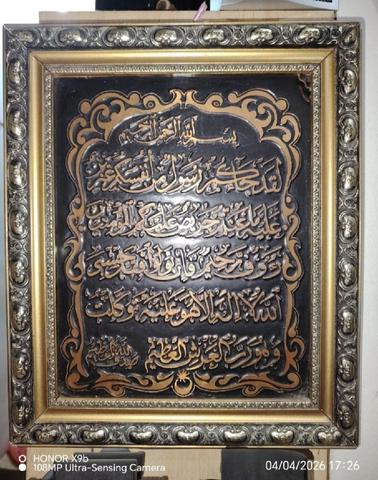 بسم الله الرحمن الرحيم
لقد جاءكم رسول من أنفسكم عزيز
عليه ما عنتم حريص عليكم بالمؤمنين
رءوف رحيم فإن تولوا فقل حسبي
الله لا إله إلا هو عليه توكلت
وهو رب العرش العظيم
HONOR X9b
108MP Ultra-Sensing Camera
04/04/2026 17:26